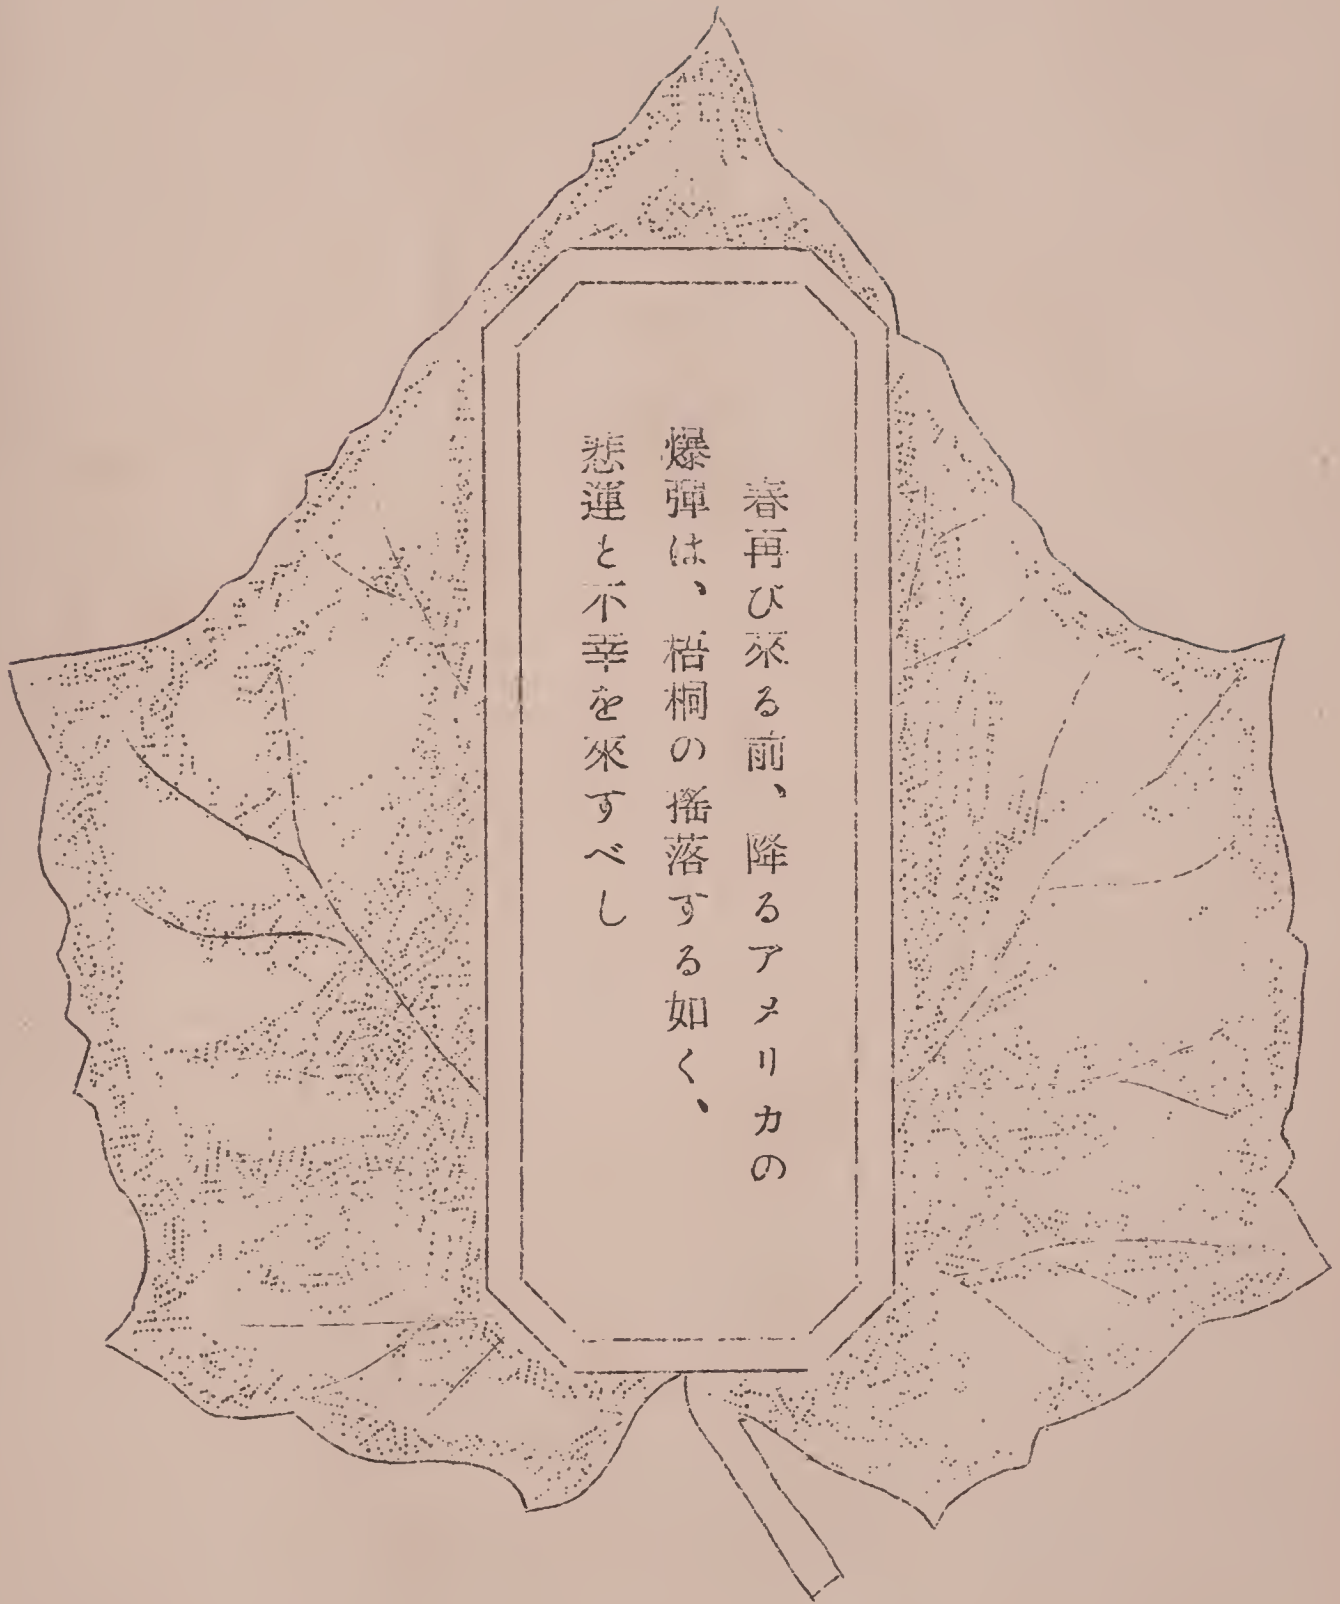 春再び來る前、降るアメリカの
爆彈は、梧桐の搖落する如く、
悲運と不幸を來すべし